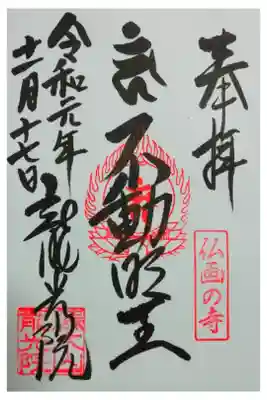 奉拝
仏画の寺
不動明王
令和元年
十一月十七日
龍光院